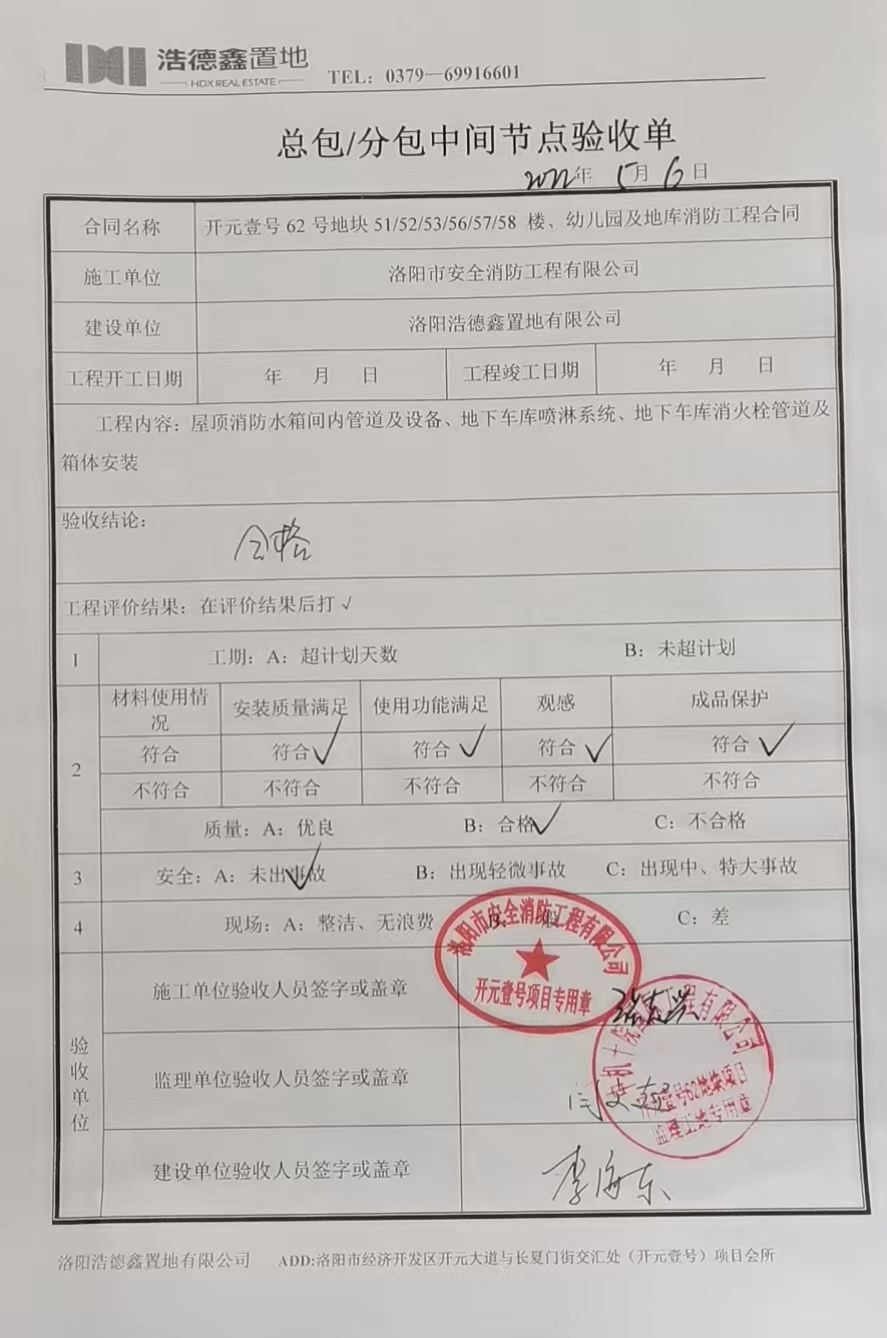 浩德鑫置地
HDX REAL ESTATE
TEL：0379—69916601
总包/分包中间节点验收单
2022年 5月 6日
合同名称 开元壹号 62 号地块 51/52/53/56/57/58 楼、幼儿园及地库消防工程合同
施工单位 洛阳市安全消防工程有限公司
建设单位 洛阳浩德鑫置地有限公司
工程开工日期 年 月 日 工程竣工日期 年 月 日
工程内容：屋顶消防水箱间内管道及设备、地下车库喷淋系统、地下车库消火栓管道及
箱体安装
验收结论：
合格
工程评价结果：在评价结果后打 √
1 工期：A：超计划天数 B：未超计划
2
材料使用情况 安装质量满足 使用功能满足 观感 成品保护
符合 符合√ 符合√ 符合√ 符合√
不符合 不符合 不符合 不符合 不符合
质量：A：优良 B：合格√ C：不合格
3 安全：A：未出事故√ B：出现轻微事故 C：出现中、特大事故
4 现场：A：整洁、无浪费 C：差
洛阳市安全消防工程有限公司
开元壹号项目专用章
验收单位
施工单位验收人员签字或盖章
监理单位验收人员签字或盖章
工程有限公司
壹号62地块项目
监理工地专用章
建设单位验收人员签字或盖章 李海东
洛阳浩德鑫置地有限公司 ADD:洛阳市经济开发区开元大道与长夏门街交汇处（开元壹号）项目会所